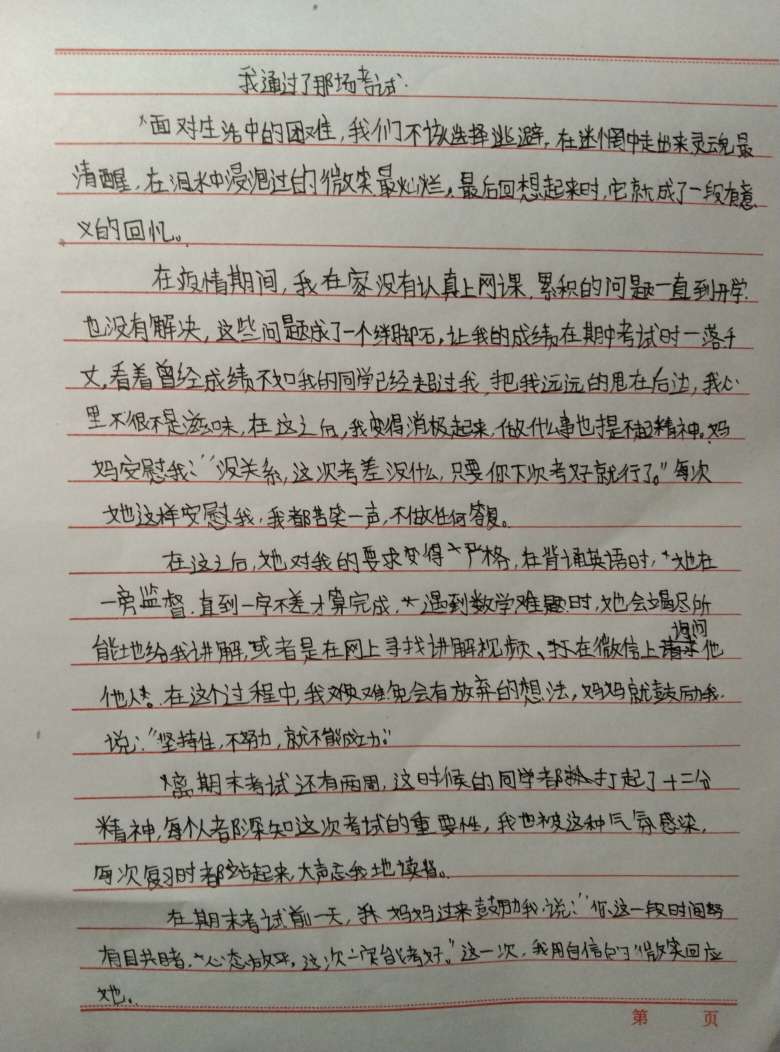 我通过了那场考试.
面对生活中的困难,我们不该选择逃避,在迷惘中走出来灵魂最
清醒,在泪水中浸泡过的微笑最灿烂,最后回想起来时,它就成了一段有意
义的回忆。
在疫情期间,我在家没有认真上网课,累积的问题一直到开学
也没有解决,这些问题成了一个绊脚石,让我的成绩在期中考试时一落千
丈,看着曾经成绩不如我的同学已经超过我,把我远远的甩在后边,我心
里不很不是滋味,在这之后,我变得消极起来,做什么事也提不起精神。妈
妈安慰我:“没关系,这次考差没什么,只要你下次考好就行了。”每次
她这样安慰我,我都苦笑一声,不做任何答复。
在这之后,她对我的要求变得严格,在背诵英语时,她在
一旁监督,直到一字不差才算完成,遇到数学难题时,她会竭尽所
能地给我讲解,或者是在网上寻找讲解视频、在微信上询问他
他人。在这个过程中,我难免会有放弃的想法,妈妈就鼓励我
说:“坚持住,不努力,就不能成功。”
离期末考试还有两周,这时候的同学都打起了十二分
精神,每个人都深知这次考试的重要性,我也被这种气氛感染,
每次复习时都站起来,大声忘我地读书。
在期末考试前一天,我妈妈过来鼓励我说:“你这一段时间努
有目共睹,心态放平,这次一定能考好。”这一次,我用自信的微笑回应
她。
第 页